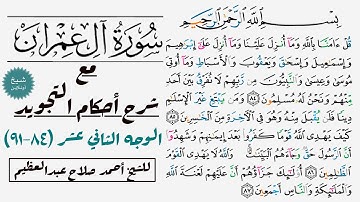 بِسْمِ ٱللَّهِ ٱلرَّحْمَٰنِ ٱلرَّحِيمِ
قُلْ ءَامَنَّا بِٱللَّهِ وَمَآ أُنزِلَ عَلَيْنَا وَمَآ أُنزِلَ عَلَىٰٓ إِبْرَٰهِيمَ
وَإِسْمَٰعِيلَ وَإِسْحَٰقَ وَيَعْقُوبَ وَٱلْأَسْبَاطِ وَمَآ أُوتِىَ
مُوسَىٰ وَعِيسَىٰ وَٱلنَّبِيُّونَ مِن رَّبِّهِمْ لَا نُفَرِّقُ بَيْنَ أَحَدٍ
مِّنْهُمْ وَنَحْنُ لَهُۥ مُسْلِمُونَ ٨٤ وَمَن يَبْتَغِ غَيْرَ ٱلْإِسْلَٰمِ
دِينًا فَلَن يُقْبَلَ مِنْهُ وَهُوَ فِى ٱلْءَاخِرَةِ مِنَ ٱلْخَٰسِرِينَ ٨٥
كَيْفَ يَهْدِى ٱللَّهُ قَوْمًا كَفَرُوا۟ بَعْدَ إِيمَٰنِهِمْ وَشَهِدُوٓا۟
أَنَّ ٱلرَّسُولَ حَقٌّ وَجَآءَهُمُ ٱلْبَيِّنَٰتُ وَٱللَّهُ لَا يَهْدِى ٱلْقَوْمَ
ٱلظَّٰلِمِينَ ٨٦ أُو۟لَٰٓئِكَ جَزَآؤُهُمْ أَنَّ عَلَيْهِمْ لَعْنَةَ ٱللَّهِ
وَٱلْمَلَٰٓئِكَةِ وَٱلنَّاسِ أَجْمَعِينَ ٨٧
سورة آل عمران
مع
شيخ
شرح أحكام التجويد
الوجه الثاني عشر (٨٤-٩١)
للشيخ أحمد صلاح عبدالعظيم